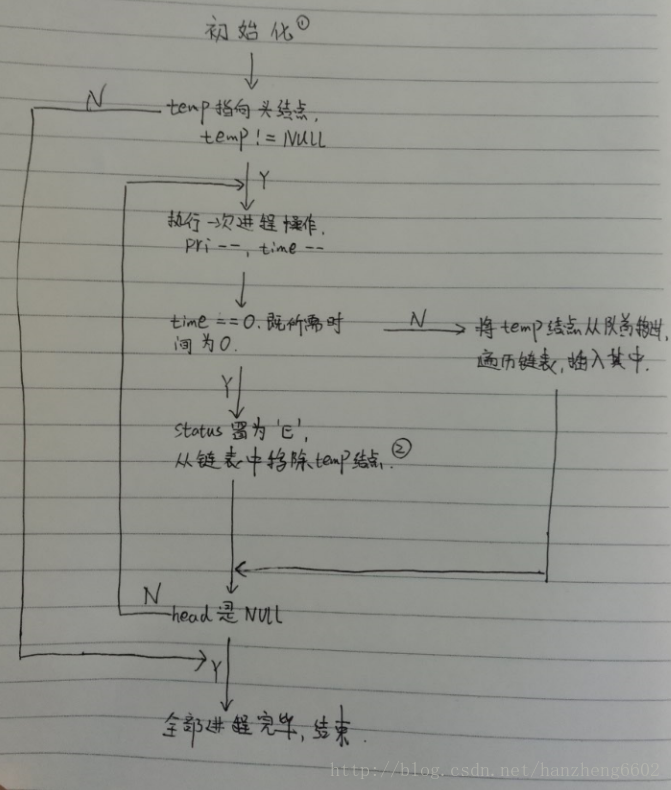 初始化①
N
temp指向头结点,
temp != NULL
Y
执行一次进程操作,
pri --, time --
time == 0. 既所需时
间为0.
N
将temp结点从队首移出,
遍历链表,插入其中.
Y
status置为'E',
从链表中移除temp结点.②
N
head是NULL
Y
全部进程完毕,结束.
http://blog.csdn.net/hanzheng6602